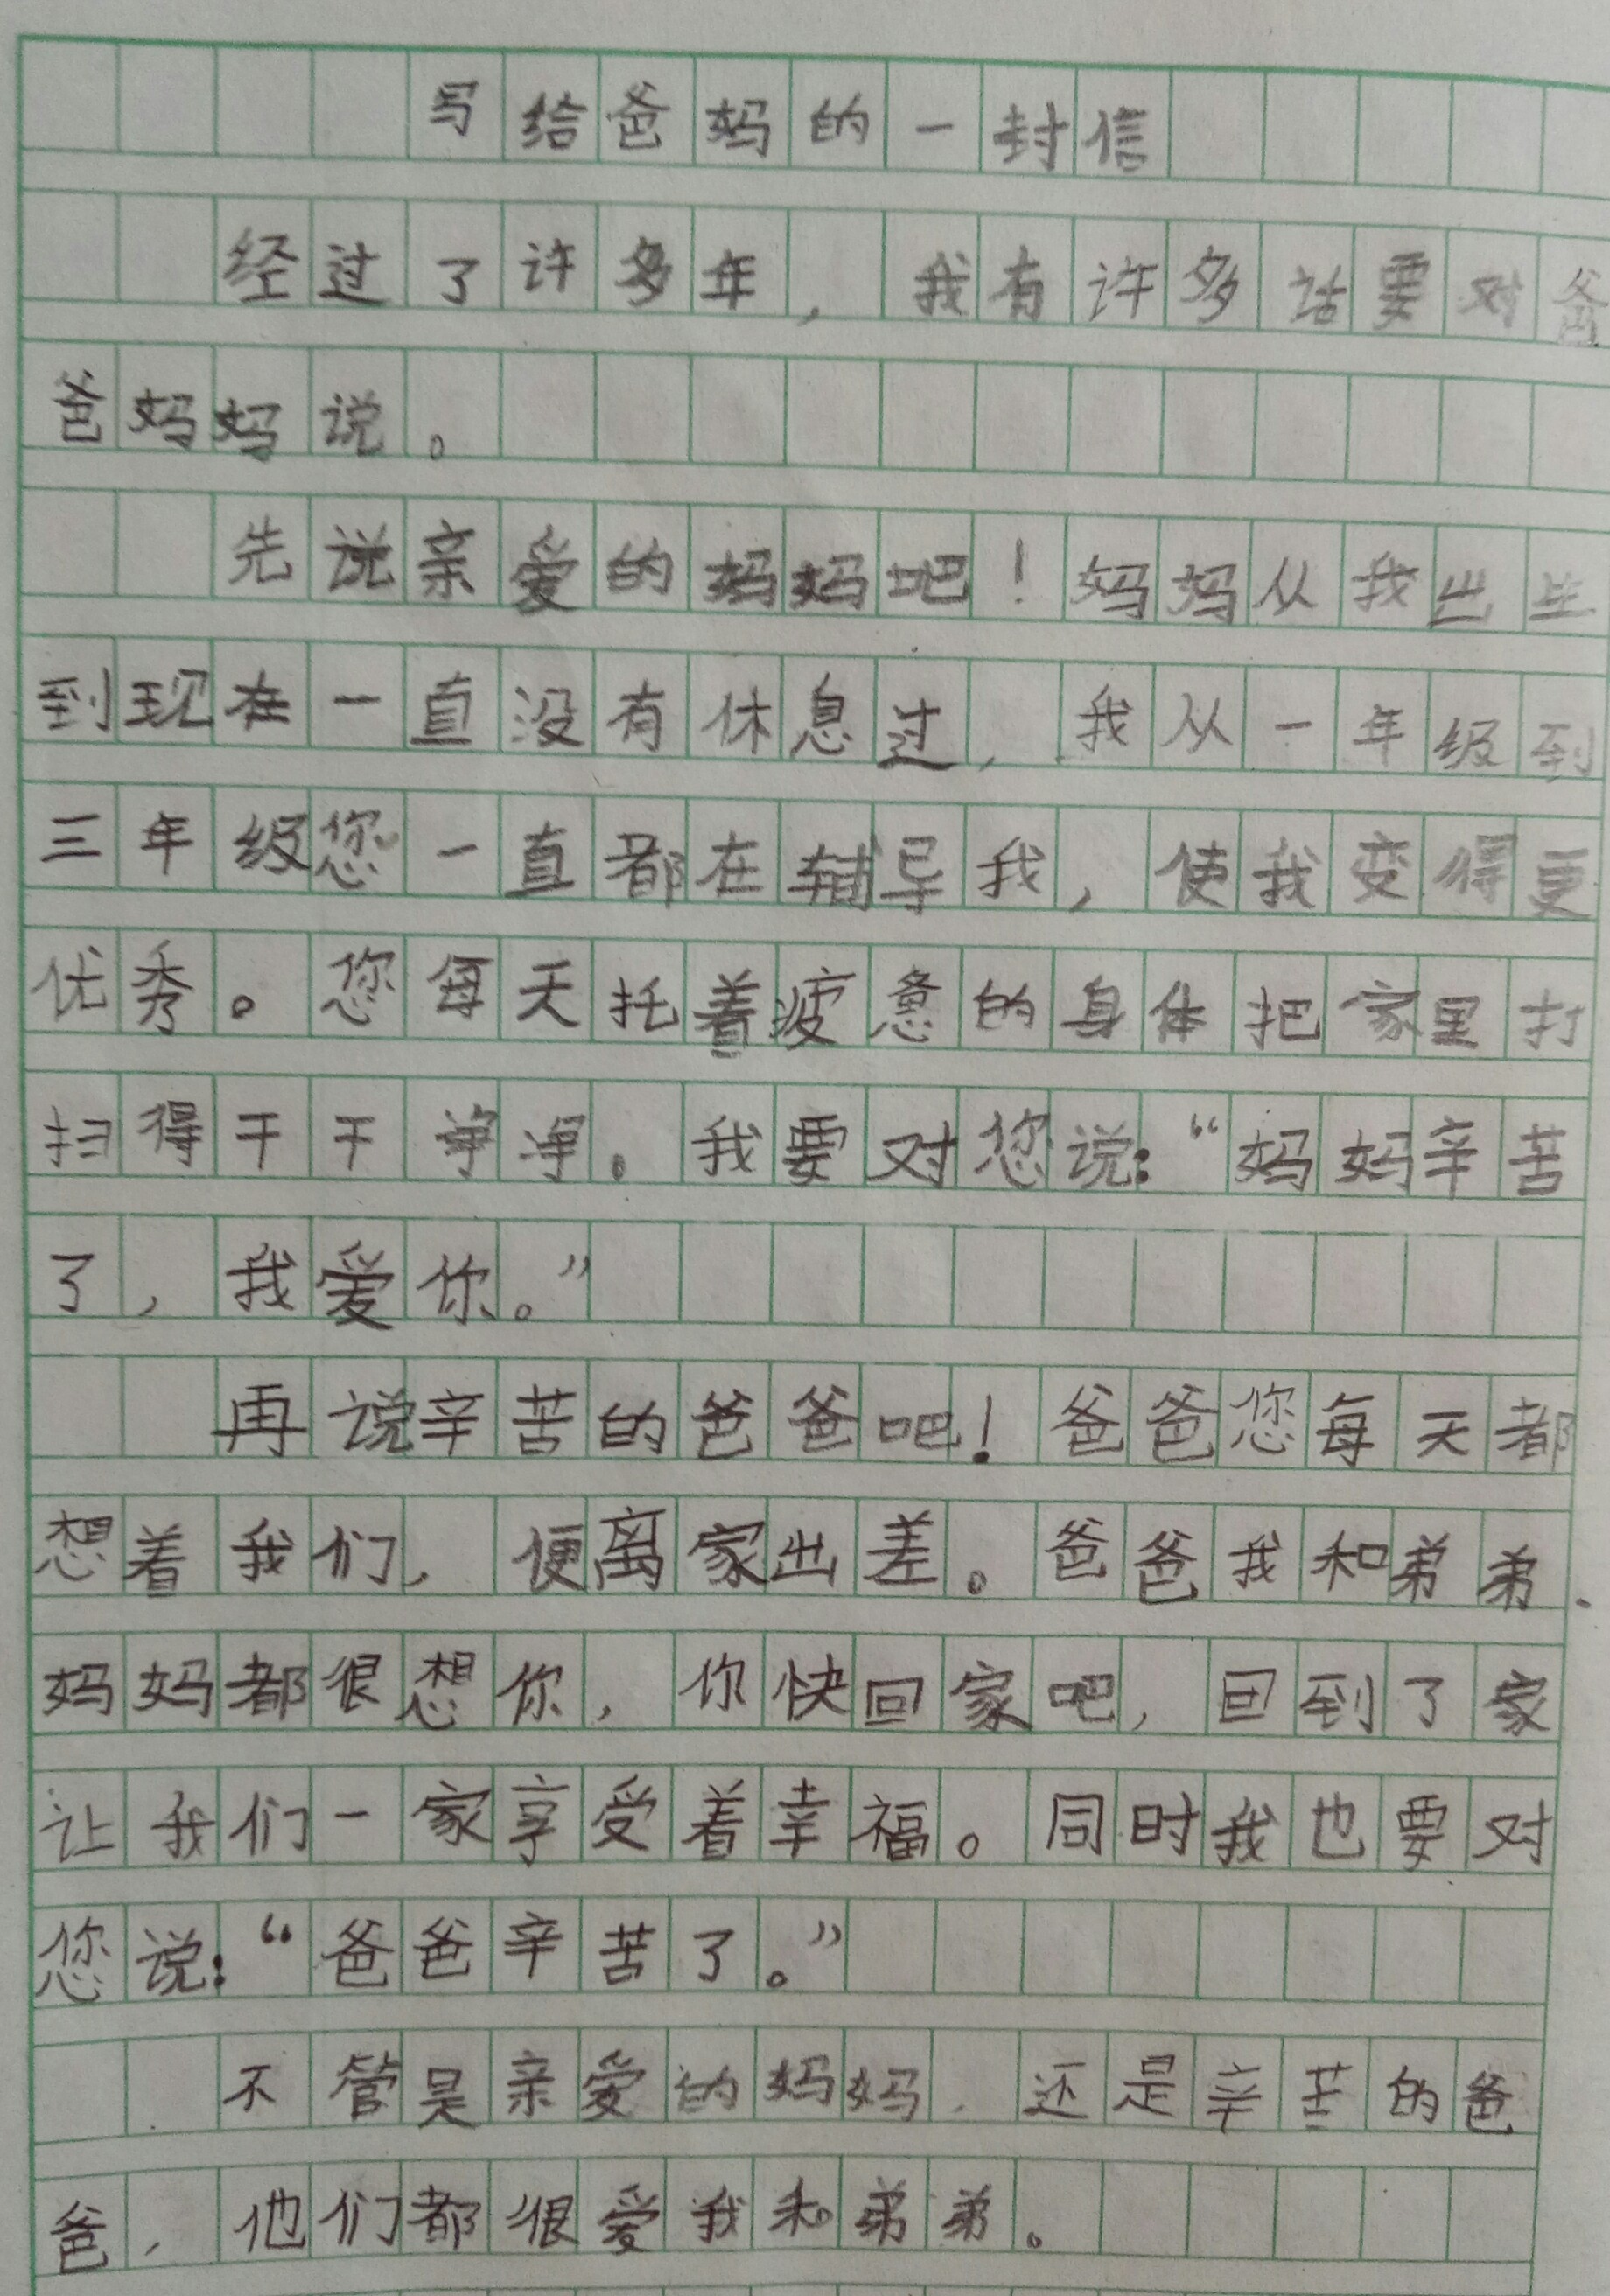 写给爸妈的一封信
经过了许多年，我有许多话要对爸
爸妈妈说。
先说亲爱的妈妈吧！妈妈从我出生
到现在一直没有休息过，我从一年级到
三年级您一直都在辅导我，使我变得更
优秀。您每天托着疲惫的身体把家里打
扫得干干净净。我要对您说：“妈妈辛苦
了，我爱你。”
再说辛苦的爸爸吧！爸爸您每天都
想着我们，便离家出差。爸爸我和弟弟、
妈妈都很想你，你快回家吧，回到了家
让我们一家享受着幸福。同时我也要对
您说：“爸爸辛苦了。”
不管是亲爱的妈妈，还是辛苦的爸
爸，他们都很爱我和弟弟。